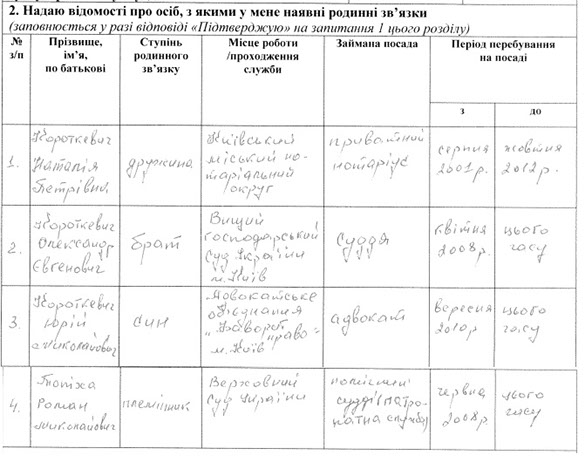 2. Надаю відомості про осіб, з якими у мене наявні родинні зв’язки
(заповнюється у разі відповіді «Підтверджую» на запитання 1 цього розділу)
№ з/п
Прізвище, ім’я, по батькові
Ступінь родинного зв’язку
Місце роботи /проходження служби
Займана посада
Період перебування на посаді
з
до
1.
Короткевич
Наталія
Петрівна
дружина
Київський
міський но-
таріальний
округ
приватний
нотаріус
серпня
2001 р.
жовтня
2012 р.
2.
Короткевич
Олександр
Євгенович
брат
Вищий
господарський
суд України
м. Київ
суддя
квітня
2008 р.
цього
часу
3.
Короткевич
Юрій
Миколайович
син
Адвокатське
об'єднання
право"
м. Київ
адвокат
вересня
2010 р
цього
часу
4.
Роман
Миколайович
племінник
Верховний
Суд України
судді (патро-
натна служба)
червня
2008 р.
цього
часу